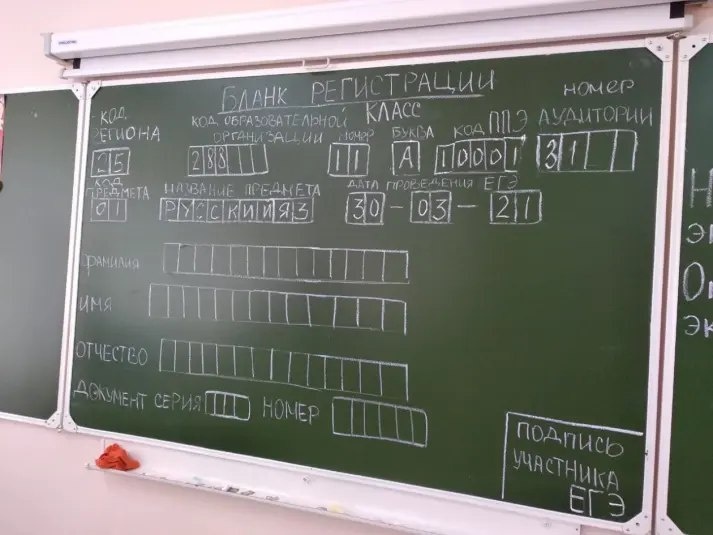 БЛАНК РЕГИСТРАЦИИ
КОД РЕГИОНА
25
КОД ОБРАЗОВАТЕЛЬНОЙ ОРГАНИЗАЦИИ
288
КЛАСС
НОМЕР
11
БУКВА
А
КОД ППЭ
10001
НОМЕР АУДИТОРИИ
31
КОД ПРЕДМЕТА
01
НАЗВАНИЕ ПРЕДМЕТА
РУССКИЙЯЗ
ДАТА ПРОВЕДЕНИЯ ЕГЭ
30-03-21
ФАМИЛИЯ
ИМЯ
ОТЧЕСТВО
ДОКУМЕНТ СЕРИЯ НОМЕР
ПОДПИСЬ
УЧАСТНИКА
ЕГЭ